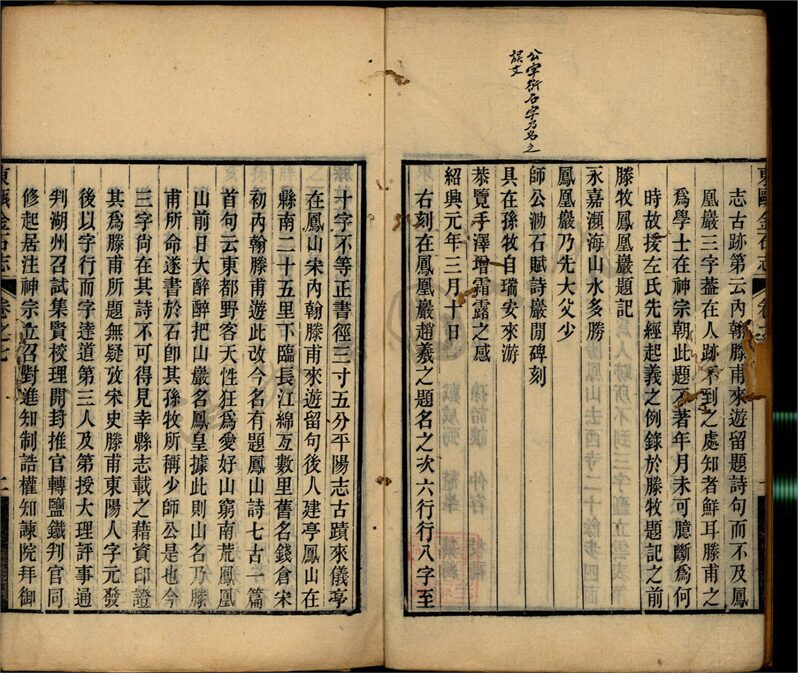 公字衍石字乃名之
誤文
東甌金石志
志古跡第云內翰滕甫來遊留題詩句而不及鳳
凰巖三字蓋在人跡不到之處知者鮮耳滕甫之
爲學士在神宗朝此題不著年月未可臆斷爲何
時故援左氏先經起義之例錄於滕牧題記之前
滕牧鳳凰巖題記
永嘉瀕海山水多勝
鳳凰巖乃先大父少
師公泐石賦詩巖閒碑刻
具在孫牧自瑞安來游
恭覽手澤增霜露之感
紹興元年三月十日
右刻在鳳凰巖趙羲之題名之次六行行八字至
十字不等正書徑三寸五分平陽志古蹟來儀亭
在鳳山宋內翰滕甫來遊留句後人建亭鳳山在
縣南二十五里下臨長江綿亙數里舊名錢倉宋
初內翰滕甫遊此改今名有題鳳山詩七古一篇
首句云東都野客天性狂爲愛好山窮南荒鳳凰
山前日大醉醉把山巖名鳳皇據此則山名乃滕
甫所命遂書於石卽其孫牧所稱少師公是也今
三字尙在其詩不可得見幸縣志載之藉資印證
其爲滕甫所題無疑攷宋史滕甫東陽人字元發
後以字行而字達道第三人及第授大理評事通
判湖州召試集賢校理開封推官轉鹽鐵判官同
修起居注神宗立召對進知制誥權知諫院拜御
東甌金石志
卷之七
二